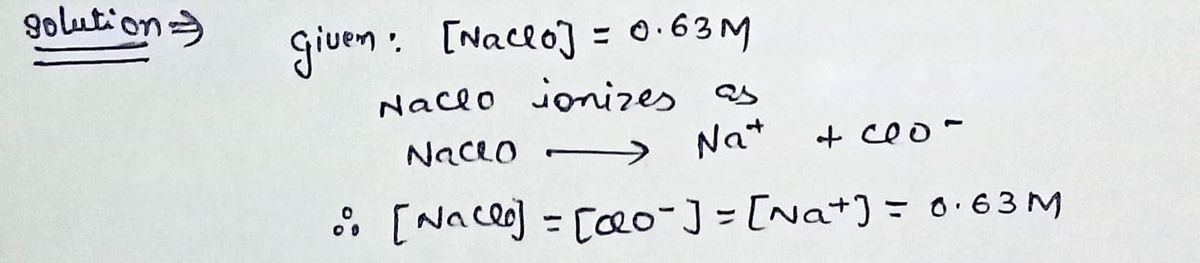 Solution ⇒ given: [NaClO] = 0.63M
NaClO ionizes as
NaClO ⟶ Na⁺ + ClO⁻
∴ [NaClO] = [ClO⁻] = [Na+] = 0.63M